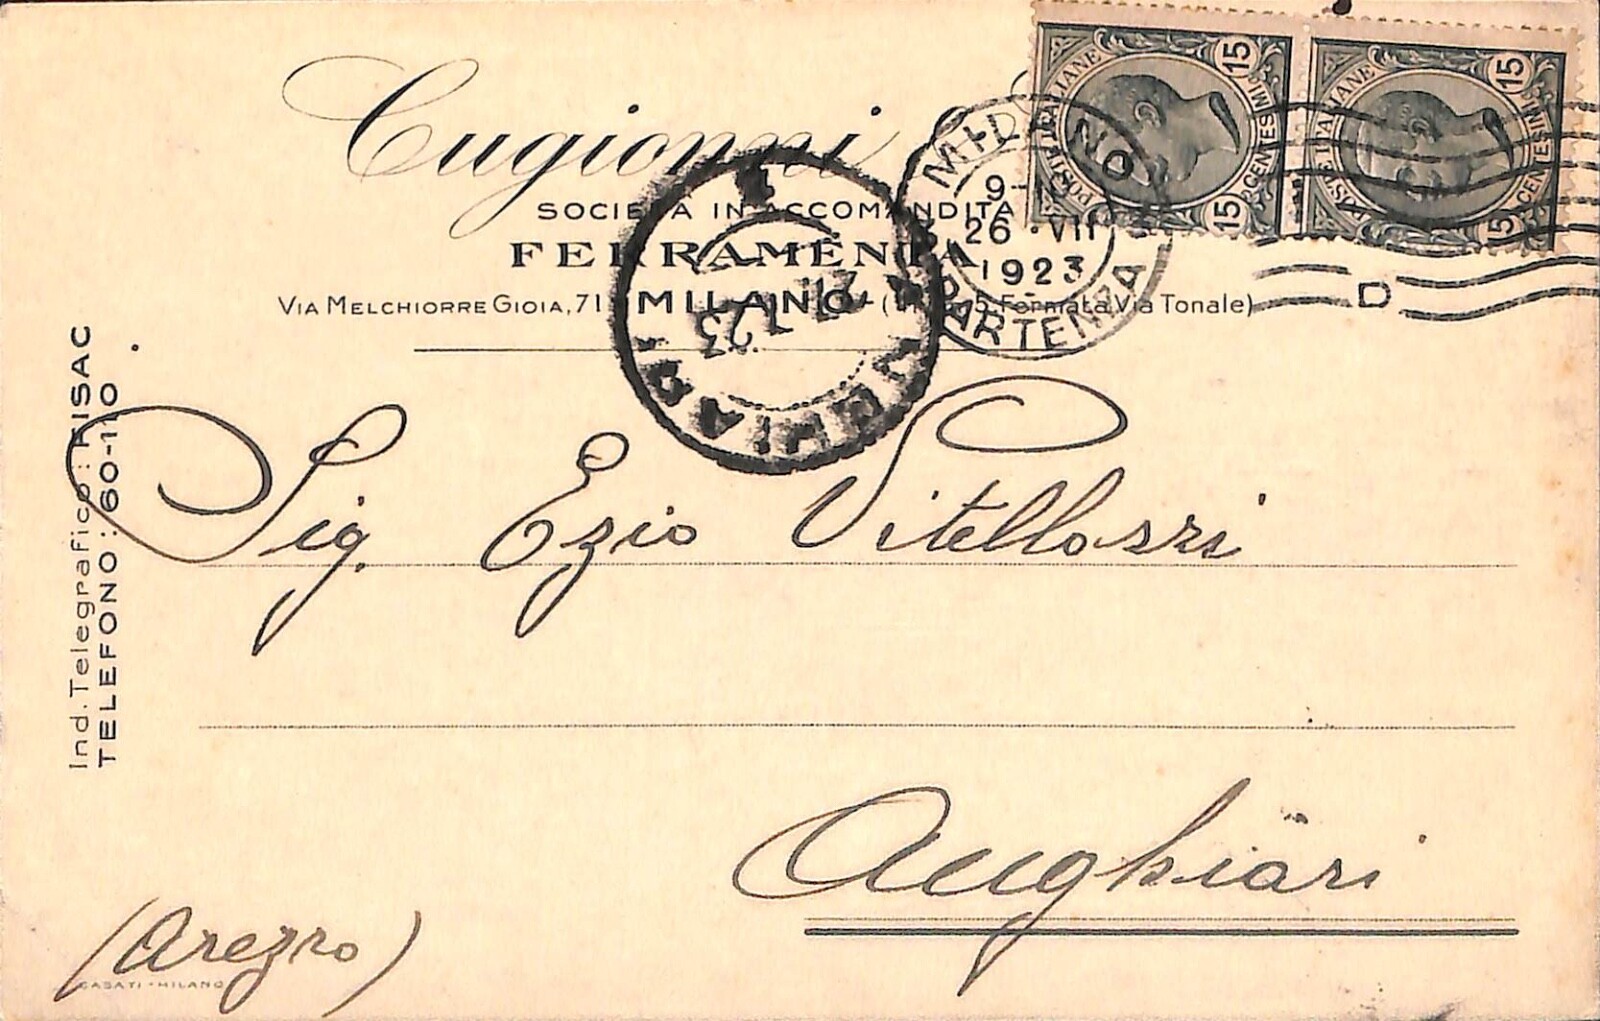 Cugionni
SOCIETÀ IN ACCOMANDITA
FERRAMENTA
VIA MELCHIORRE GIOIA, 71 MILANO (Tram 5, Fermata Via Tonale)
POSTE ITALIANE
15
CENTESIMI
15
POSTE ITALIANE
15
CENTESIMI
15
MILANO
26 VII
1923
PARTENZA
D
ANGHIARI
27 7 23
Ind. Telegrafico:
TELEFONO: 60-110
Sig. Ezio Vitellozzi
Anghiari
(Arezzo)
CASATI - MILANO